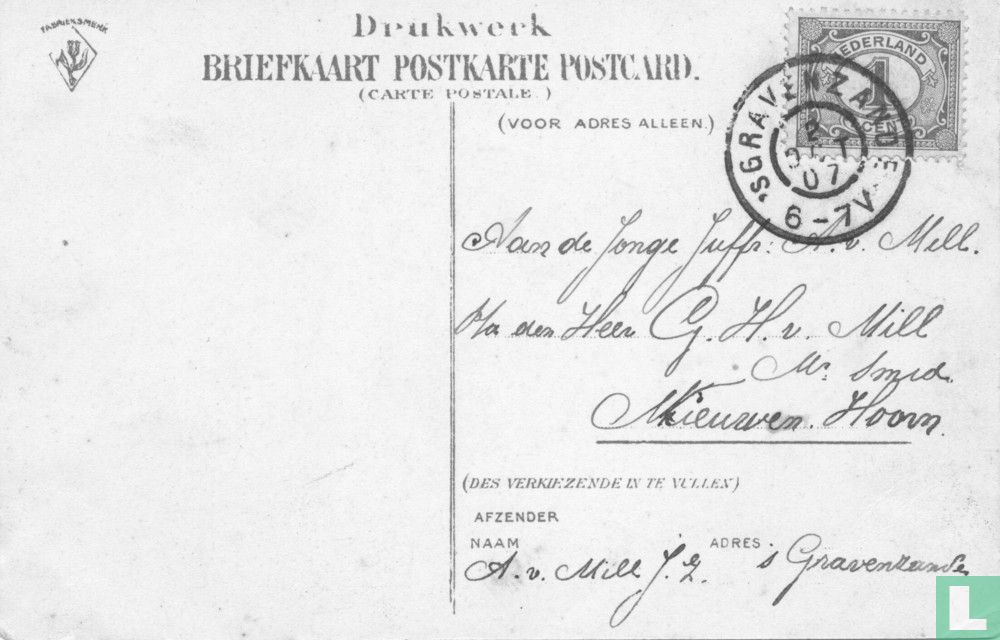 FABRIEKSMERK
Drukwerk
BRIEFKAART POSTKARTE POSTCARD.
(CARTE POSTALE.)
(VOOR ADRES ALLEEN.)
NEDERLAND
1
CENT
'SGRAVENZANDE
2
OCT
07
6-7V
Aan de Jonge Juffr: A. v. Mell.
den Heer G. H. v. Mill
Mr Smid.
Nieuwen. Hoorn.
(DES VERKIEZENDE IN TE VULLEN)
AFZENDER
NAAM ADRES:
A. v. Mill J. z. s Gravenzande
L